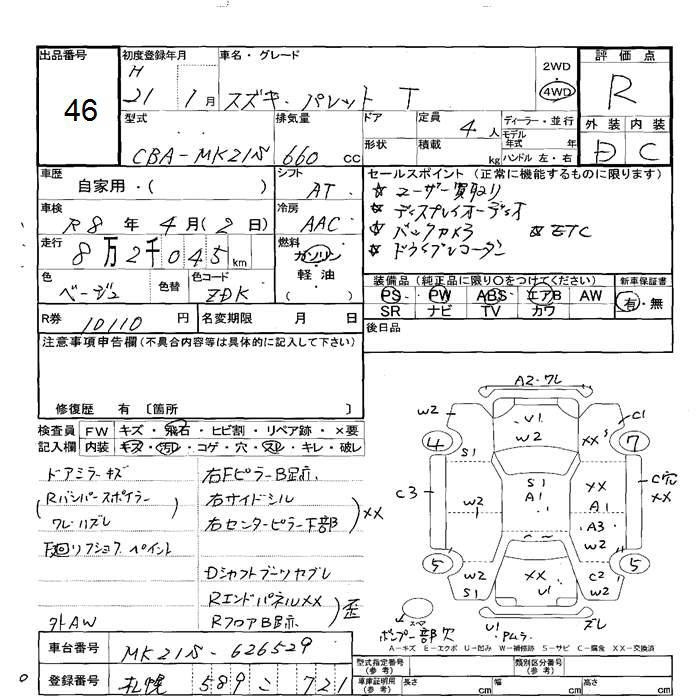 出品番号 初度登録年月 車名・グレード 2WD 評価点
46 H 21 1月 スズキ・パレット T 4WD R
型式 排気量 ドア 定員 4人 ディーラー・並行 外装 内装
モデル年式 年
CBA-MK21S 660cc 形状 積載 kg ハンドル 左・右 C
車歴 自家用・( ) シフト AT セールスポイント (正常に機能するものに限ります)
☆ユーザー買取り
車検 R8年 4月(2日) 冷房 AAC ☆ディスプレイオーディオ
☆バックカメラ ☆ETC
走行 8万2千045km 燃料 ガソリン 軽油 ( )
☆ドライブレコーダー
色 ベージュ 色替 色コード ZDK
装備品 (純正品に限り○をつけてください) 新車保証書
PS PW ABS エアB AW 有・無
SR ナビ TV カワ
R券 10110円 名変期限 月 日 後日品
注意事項申告欄 (不具合内容等は具体的に記入して下さい)
修復歴 有 〔箇所
検査員 FW キズ・飛石・ヒビ割・リペア跡・×要
記入欄 内装 キズ・汚レ・コゲ・穴・スレ・キレ・破レ
ドアミラーキズ 右FピラーB跡
Rバンパースポイラー 右サイドシル
ワレハズレ 右センターピラー下部 XX
下廻リ ペイント
Dシャフトブーツヤブレ
RエンドパネルXX 歪
外AW RフロアB跡
A2・ワレ
W2 U1 C1
4 W2 XX S 7
S1
C3 S1 XX C穴
W2 A1 A1 XX
1 A3
W2
5 5
W2 XX C2
S1 U1 W2
スペア U1 ズレ
ポンプ一部欠
A-キズ E-エクボ U-凹み W-補修跡 S-サビ C-腐食 XX-交換済
車台番号 MK21S-626529
登録番号 札幌 589 こ 721
型式指定番号(参考) 類別区分番号(参考)
車庫証明用(参考) 長さ cm 幅 cm 高さ cm